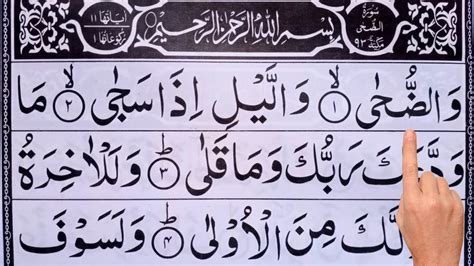 سُوْرَةُ الضُّحٰى مَكِّيَّةٌ ٩٣
بِسْمِ اللهِ الرَّحْمٰنِ الرَّحِيْمِ
اٰيَاتُهَا ١١
رُكُوْعَاتُهَا ١
وَالضُّحٰىۙ ۝١ وَالَّيْلِ اِذَا سَجٰىۙ ۝٢ مَا
رَبُّكَ وَمَا قَلٰىؕ ۝٣ وَلَلْاٰخِرَةُ
لَّكَ مِنَ الْاُوْلٰىؕ ۝٤ وَلَسَوْفَ